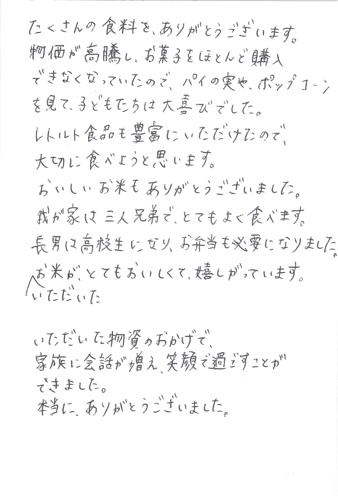 たくさんの食料を、ありがとうございます。
物価が高騰し、お菓子をほとんど購入
できなくなっていたので、パイの実や、ポップコーン
を見て、子どもたちは大喜びでした。
レトルト食品も豊富にいただけたので、
大切に食べようと思います。
おいしいお米もありがとうございました。
我が家は三人兄弟で、とてもよく食べます。
長男は高校生になり、お弁当も必要になりました。
お米が、とてもおいしくて、嬉しがっています。
いただいた
いただいた物資のおかげで、
家族に会話が増え、笑顔で過ごすことが
できました。
本当に、ありがとうございました。